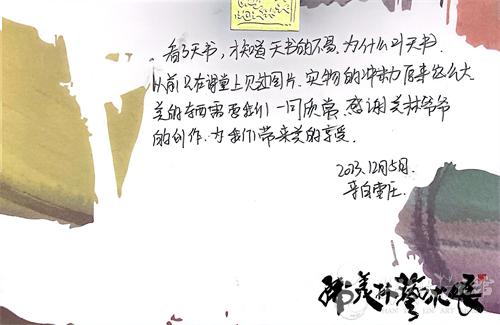 看了天书，才知道天书的不易，为什么叫天书.
从前只在课堂上见过图片.实物的冲击力原来这么大
美的东西需要我们一同欣赏.感谢美林爷爷
的创作.为我们带来美的享受.
2013.12月5日.
韩美林藝术展